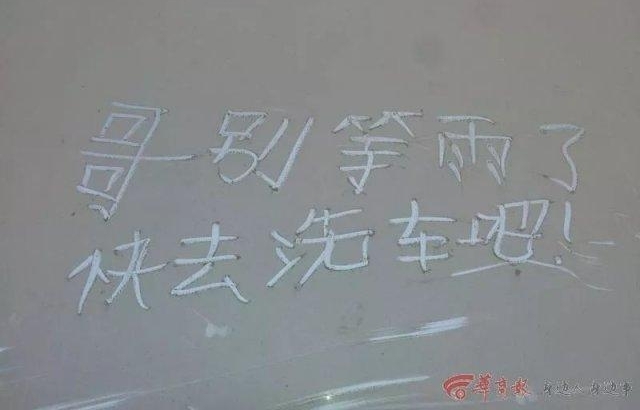 哥别等雨了
快去洗车吧!
華商報 身边人身边事